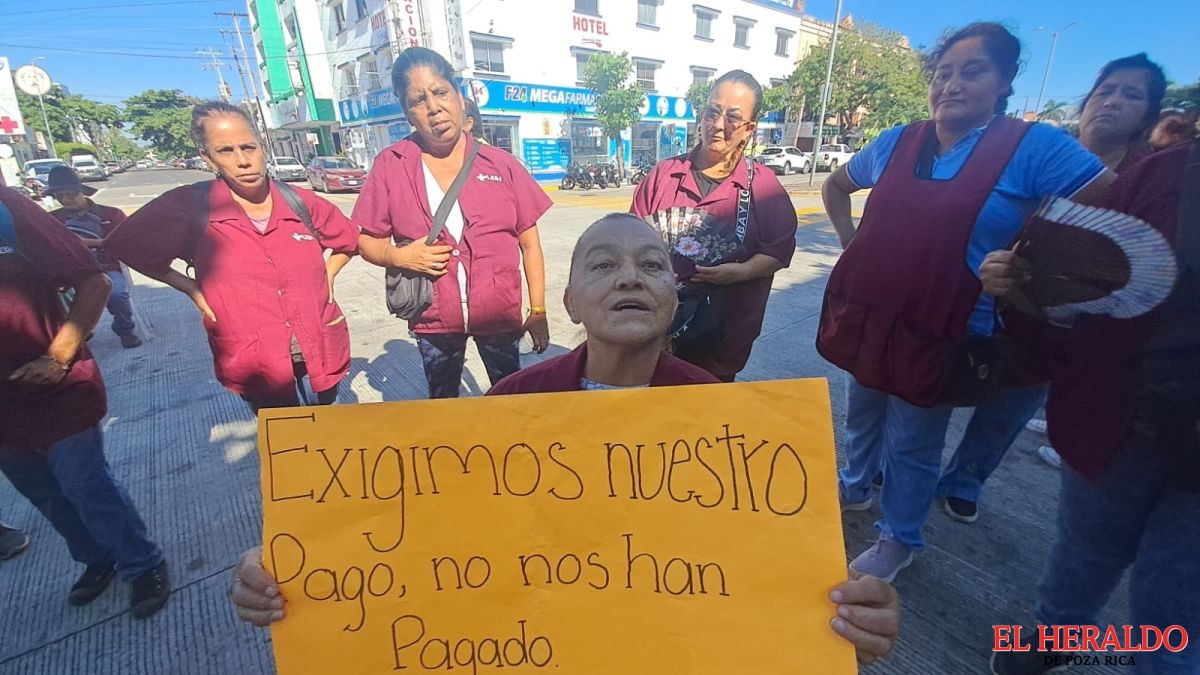 HOTEL
HOTEL
F24 MEGAFARMA
Exigimos nuestro
Pago, no nos han
Pagado.
EL HERALDO
DE POZA RICA